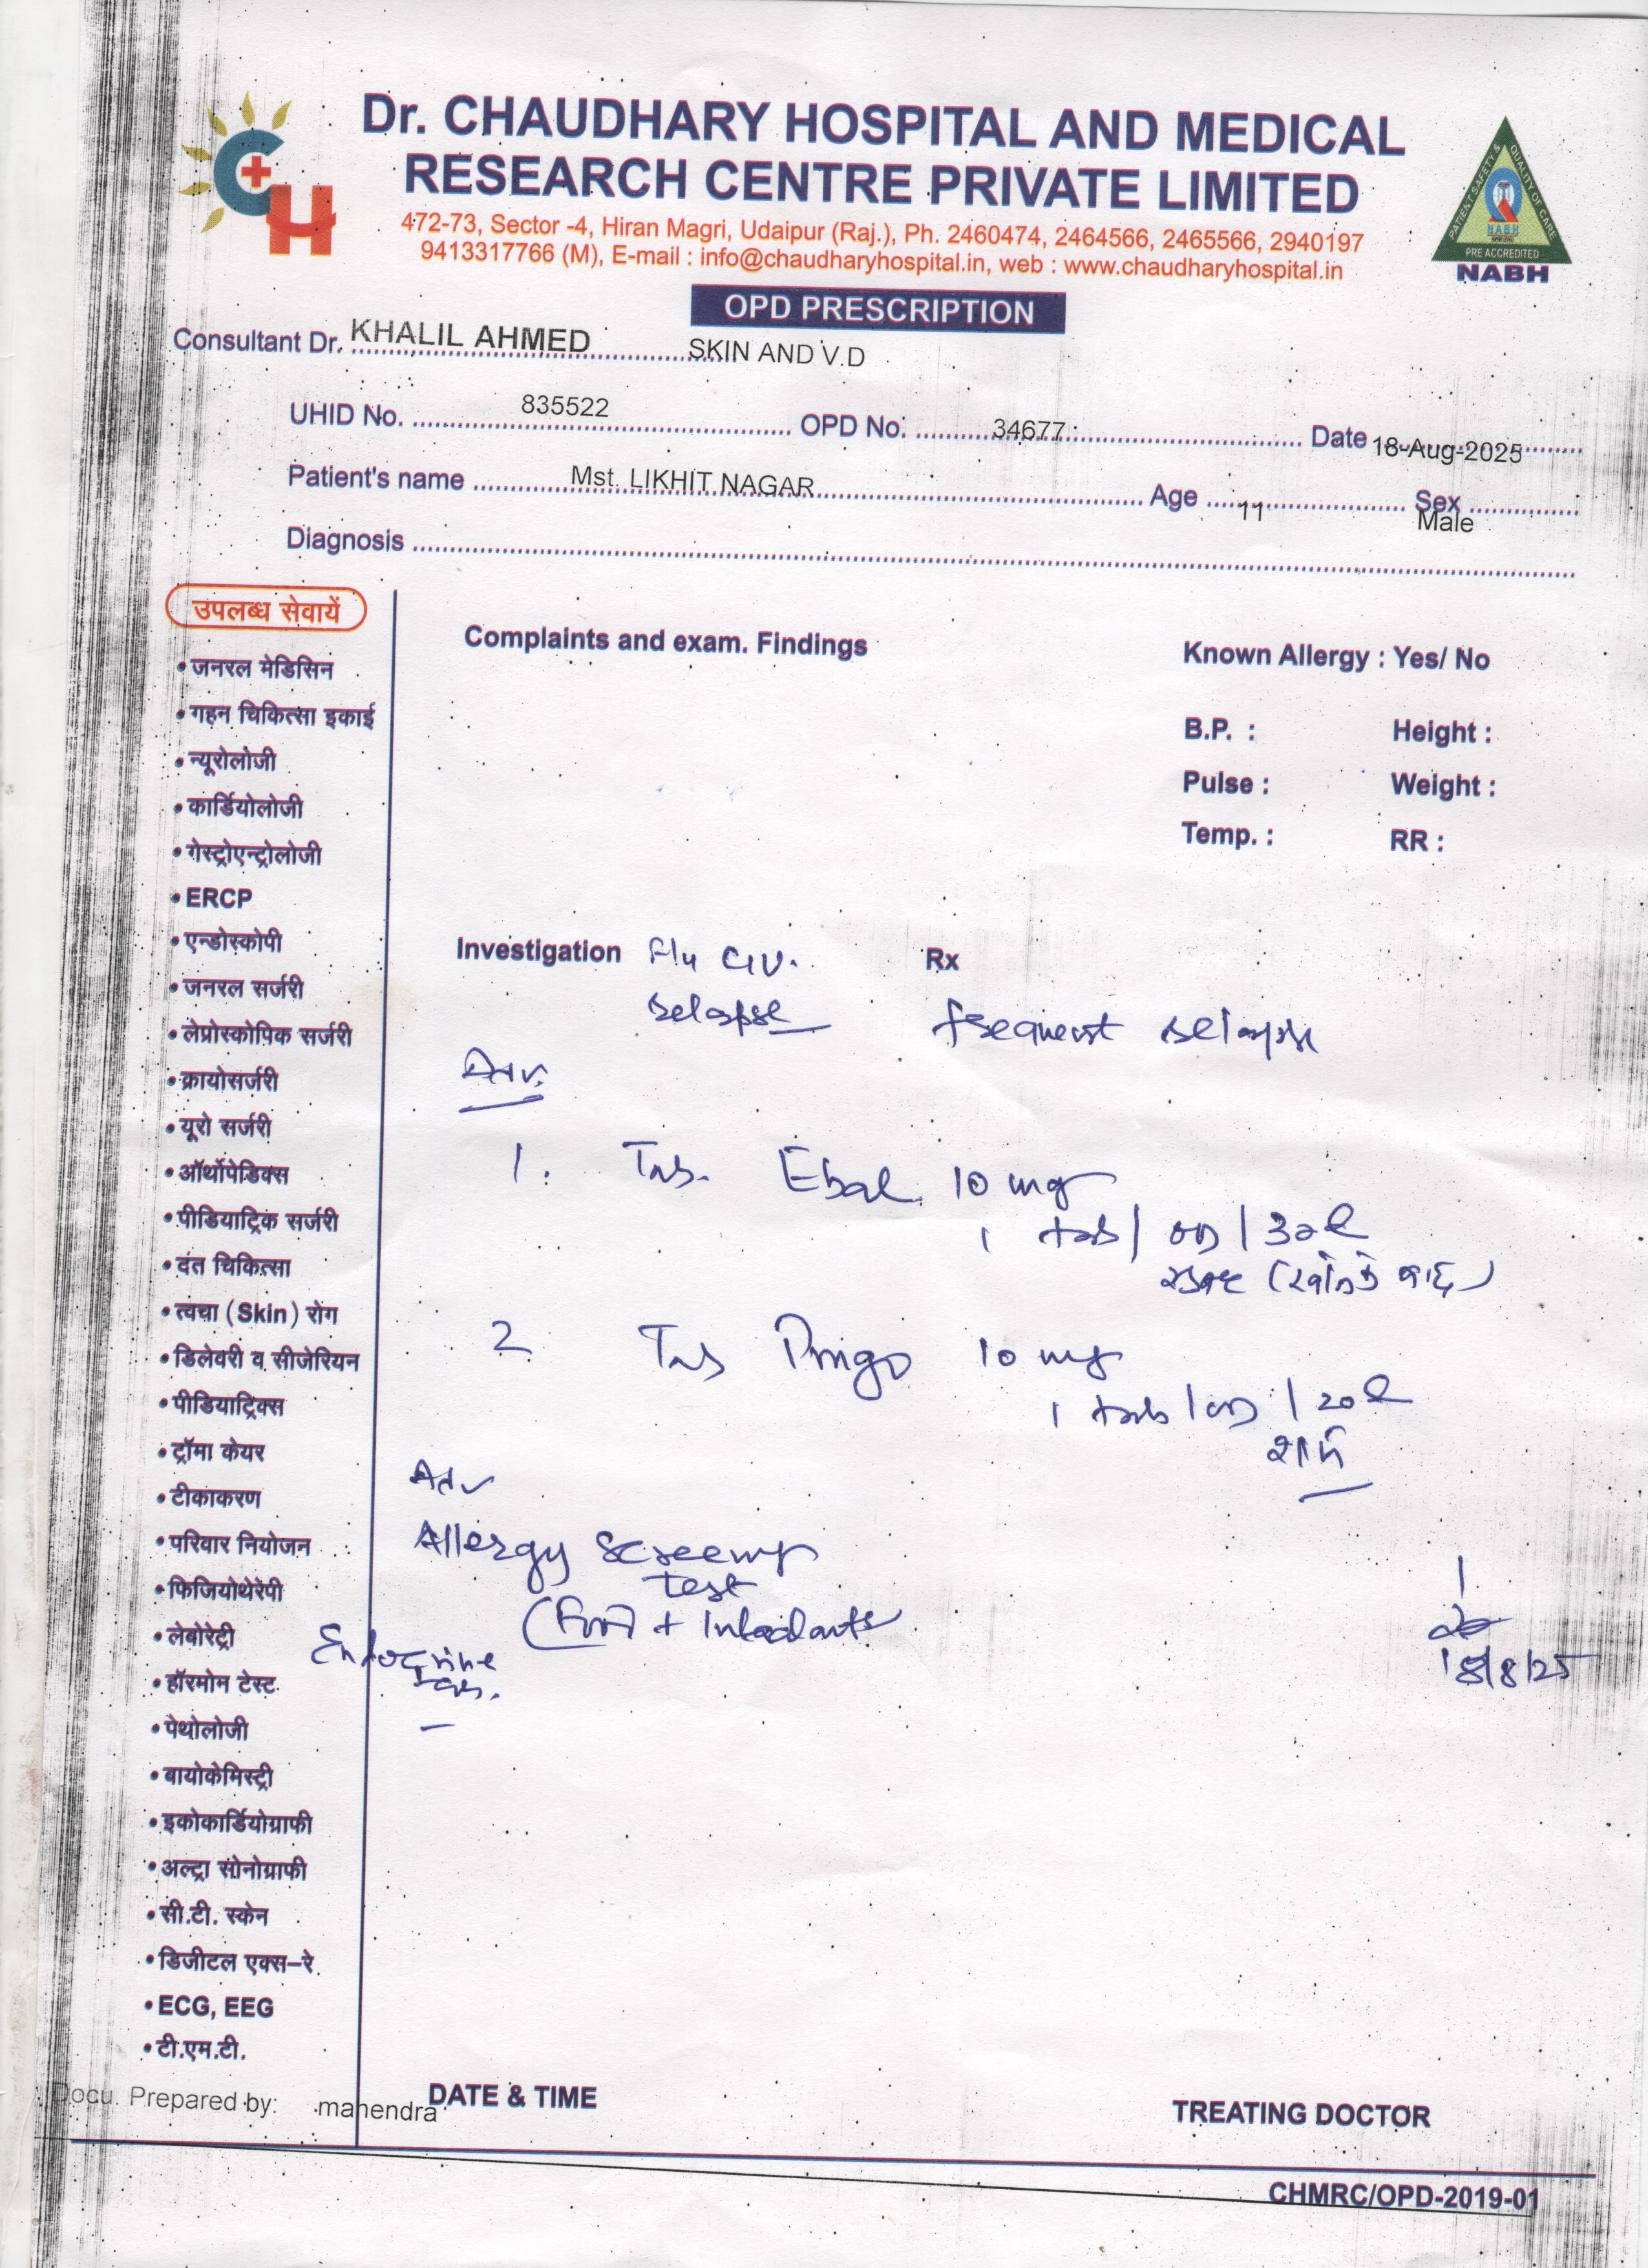 Dr. CHAUDHARY HOSPITAL AND MEDICAL
RESEARCH CENTRE PRIVATE LIMITED
472-73, Sector -4, Hiran Magri, Udaipur (Raj.), Ph. 2460474, 2464566, 2465566, 2940197
9413317766 (M), E-mail : info@chaudharyhospital.in, web : www.chaudharyhospital.in
PATIENT SAFETY & QUALITY OF CARE
NABH
PRE ACCREDITED
NABH
OPD PRESCRIPTION
Consultant Dr. KHALIL AHMED SKIN AND V.D
UHID No. 835522 OPD No. 34677 Date 18-Aug-2025
Patient's name Mst. LIKHIT NAGAR Age 11 Sex Male
Diagnosis
उपलब्ध सेवायें
• जनरल मेडिसिन
• गहन चिकित्सा इकाई
• न्यूरोलोजी
• कार्डियोलोजी
• गेस्ट्रोएन्ट्रोलोजी
• ERCP
• एन्डोस्कोपी
• जनरल सर्जरी
• लेप्रोस्कोपिक सर्जरी
• क्रायोसर्जरी
• यूरो सर्जरी
• ऑर्थोपेडिक्स
• पीडियाट्रिक सर्जरी
• दंत चिकित्सा
• त्वचा (Skin) रोग
• डिलेवरी व सीजेरियन
• पीडियाट्रिक्स
• ट्रॉमा केयर
• टीकाकरण
• परिवार नियोजन
• फिजियोथेरेपी
• लेबोरेट्री
• हॉरमोन टेस्ट
• पेथोलोजी
• बायोकेमिस्ट्री
• इकोकार्डियोग्राफी
• अल्ट्रा सोनोग्राफी
• सी.टी. स्केन
• डिजीटल एक्स-रे
• ECG, EEG
• टी.एम.टी.
Complaints and exam. Findings
Known Allergy : Yes/ No
B.P. : Height :
Pulse : Weight :
Temp. : RR :
Investigation
relapse
Rx
frequent relapse
Adv.
1. Tab. Ebal 10 mg
1 tab / OD /
(खाने के बाद)
2 Tab 10 mg
1 tab / OD /
शाम
Adv
Allergy Screening
Test
(Food + Inhalants
Endocrine
18/8/25
Docu. Prepared by: mahendra
DATE & TIME
TREATING DOCTOR
CHMRC/OPD-2019-01